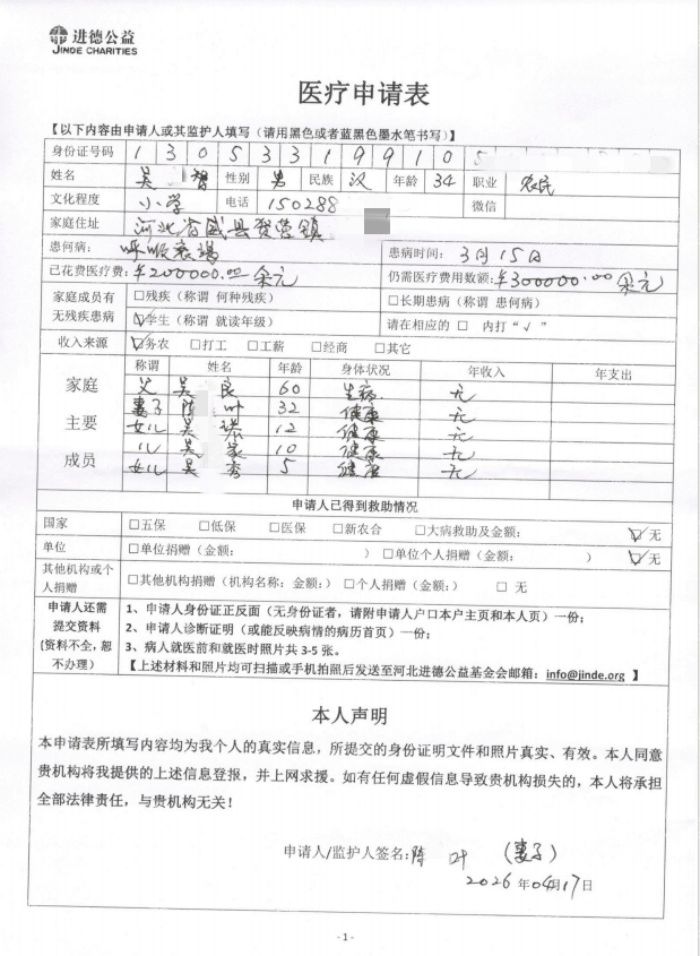 进德公益
JINDE CHARITIES
医疗申请表
【以下内容由申请人或其监护人填写（请用黑色或者蓝黑色墨水笔书写）】
身份证号码 1 3 0 5 3 3 1 9 9 1 0 5
姓名 吴 智 性别 男 民族 汉 年龄 34 职业 农民
文化程度 小学 电话 150288 微信
家庭住址 河北省威县贺营镇
患何病： 呼吸衰竭 患病时间： 3月15日
已花费医疗费：￥200000.00 余元 仍需医疗费用数额：￥300000.00 余元
家庭成员有无残疾患病 □残疾（称谓 何种残疾） □长期患病（称谓 患何病）
☑学生（称谓 就读年级） 请在相应的 □ 内打“√”
收入来源 ☑务农 □打工 □工薪 □经商 □其它
家庭主要成员 称谓 姓名 年龄 身体状况 年收入 年支出
父 吴 良 60 生病 无
妻子 陈 叶 32 健康 无
女儿 吴 12 健康 无
儿 吴 家 10 健康 无
女儿 吴 5 健康 无
申请人已得到救助情况
国家 □五保 □低保 □医保 □新农合 □大病救助及金额： ☑无
单位 □单位捐赠（金额： ） □单位个人捐赠（金额： ） ☑无
其他机构或个人捐赠 □其他机构捐赠（机构名称：金额：）□个人捐赠（金额：） □ 无
申请人还需提交资料（资料不全，恕不办理） 1、申请人身份证正反面（无身份证者，请附申请人户口本户主页和本人页）一份；
2、申请人诊断证明（或能反映病情的病历首页）一份；
3、病人就医前和就医时照片共 3-5 张。
【上述材料和照片均可扫描或手机拍照后发送至河北进德公益基金会邮箱：info@jinde.org 】
本人声明
本申请表所填写内容均为我个人的真实信息，所提交的身份证明文件和照片真实、有效。本人同意
贵机构将我提供的上述信息登报，并上网求援。如有任何虚假信息导致贵机构损失的，本人将承担
全部法律责任，与贵机构无关！
申请人/监护人签名：陈 叶 （妻子）
2026 年04月17日
- 1 -